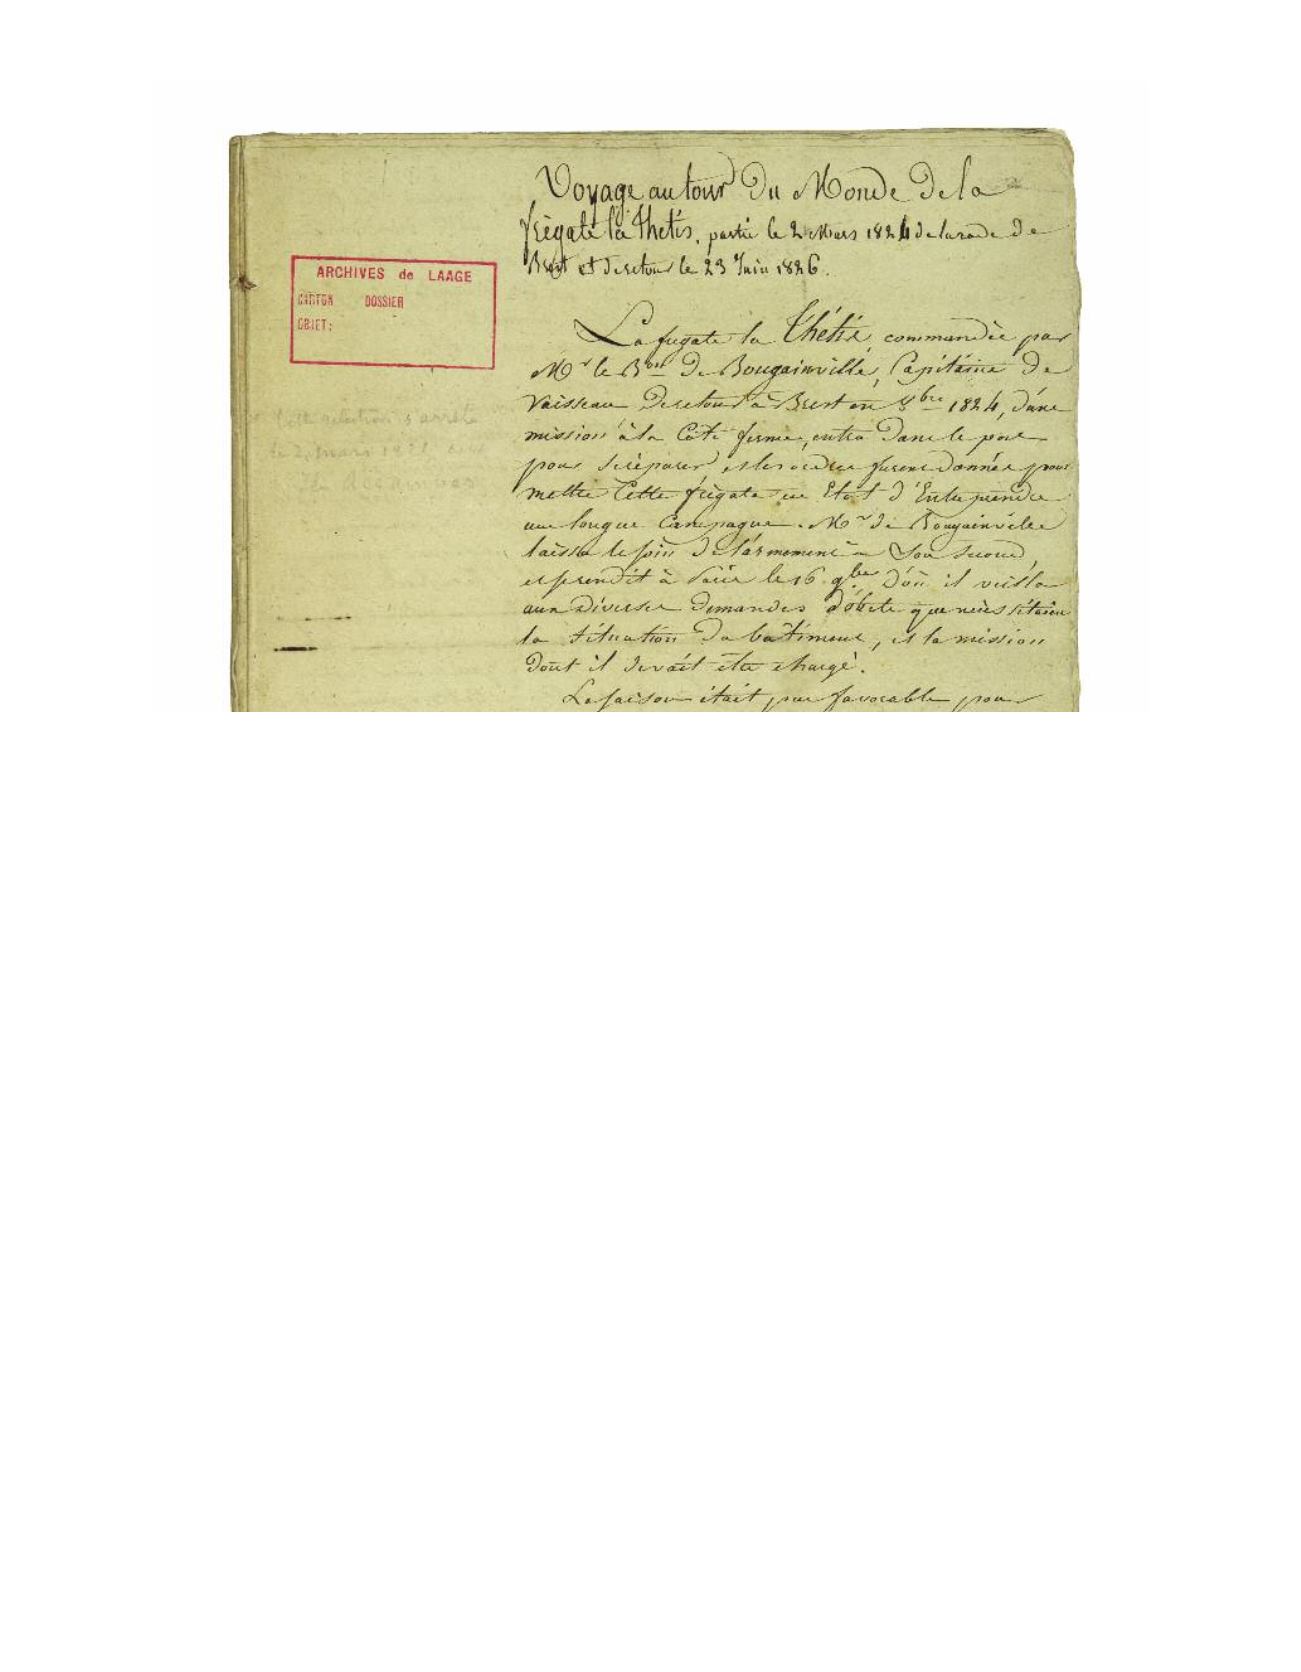 Voyage autour du Monde de la
frégate la Thétis, partie le 2 Mars 1824 de la rade de
Brest et de retour le 23 Juin 1826.
ARCHIVES de LAAGE
CARTON DOSSIER
OBJET:
La frégate la Thétis, commandée par
Mr le Bon de Bougainville, Capitaine de
Vaisseau de retour à Brest en 8bre 1824, d'une
mission à la Côte ferme, entra dans le port
pour se réparer, et les ordres furent donnés pour
mettre Cette frégate en Etat d'Entreprendre
une longue Campagne. Mr de Bougainville
laissa le soin de l'armement à Son second,
et se rendit à Paris le 16 9bre d'où il veilla
aux diverses demandes d'objets que nécessitaient
la situation du bâtiment, et la mission
dont il devait être chargé.
La saison était peu favorable pour
relation s'arrête
le 2 mars